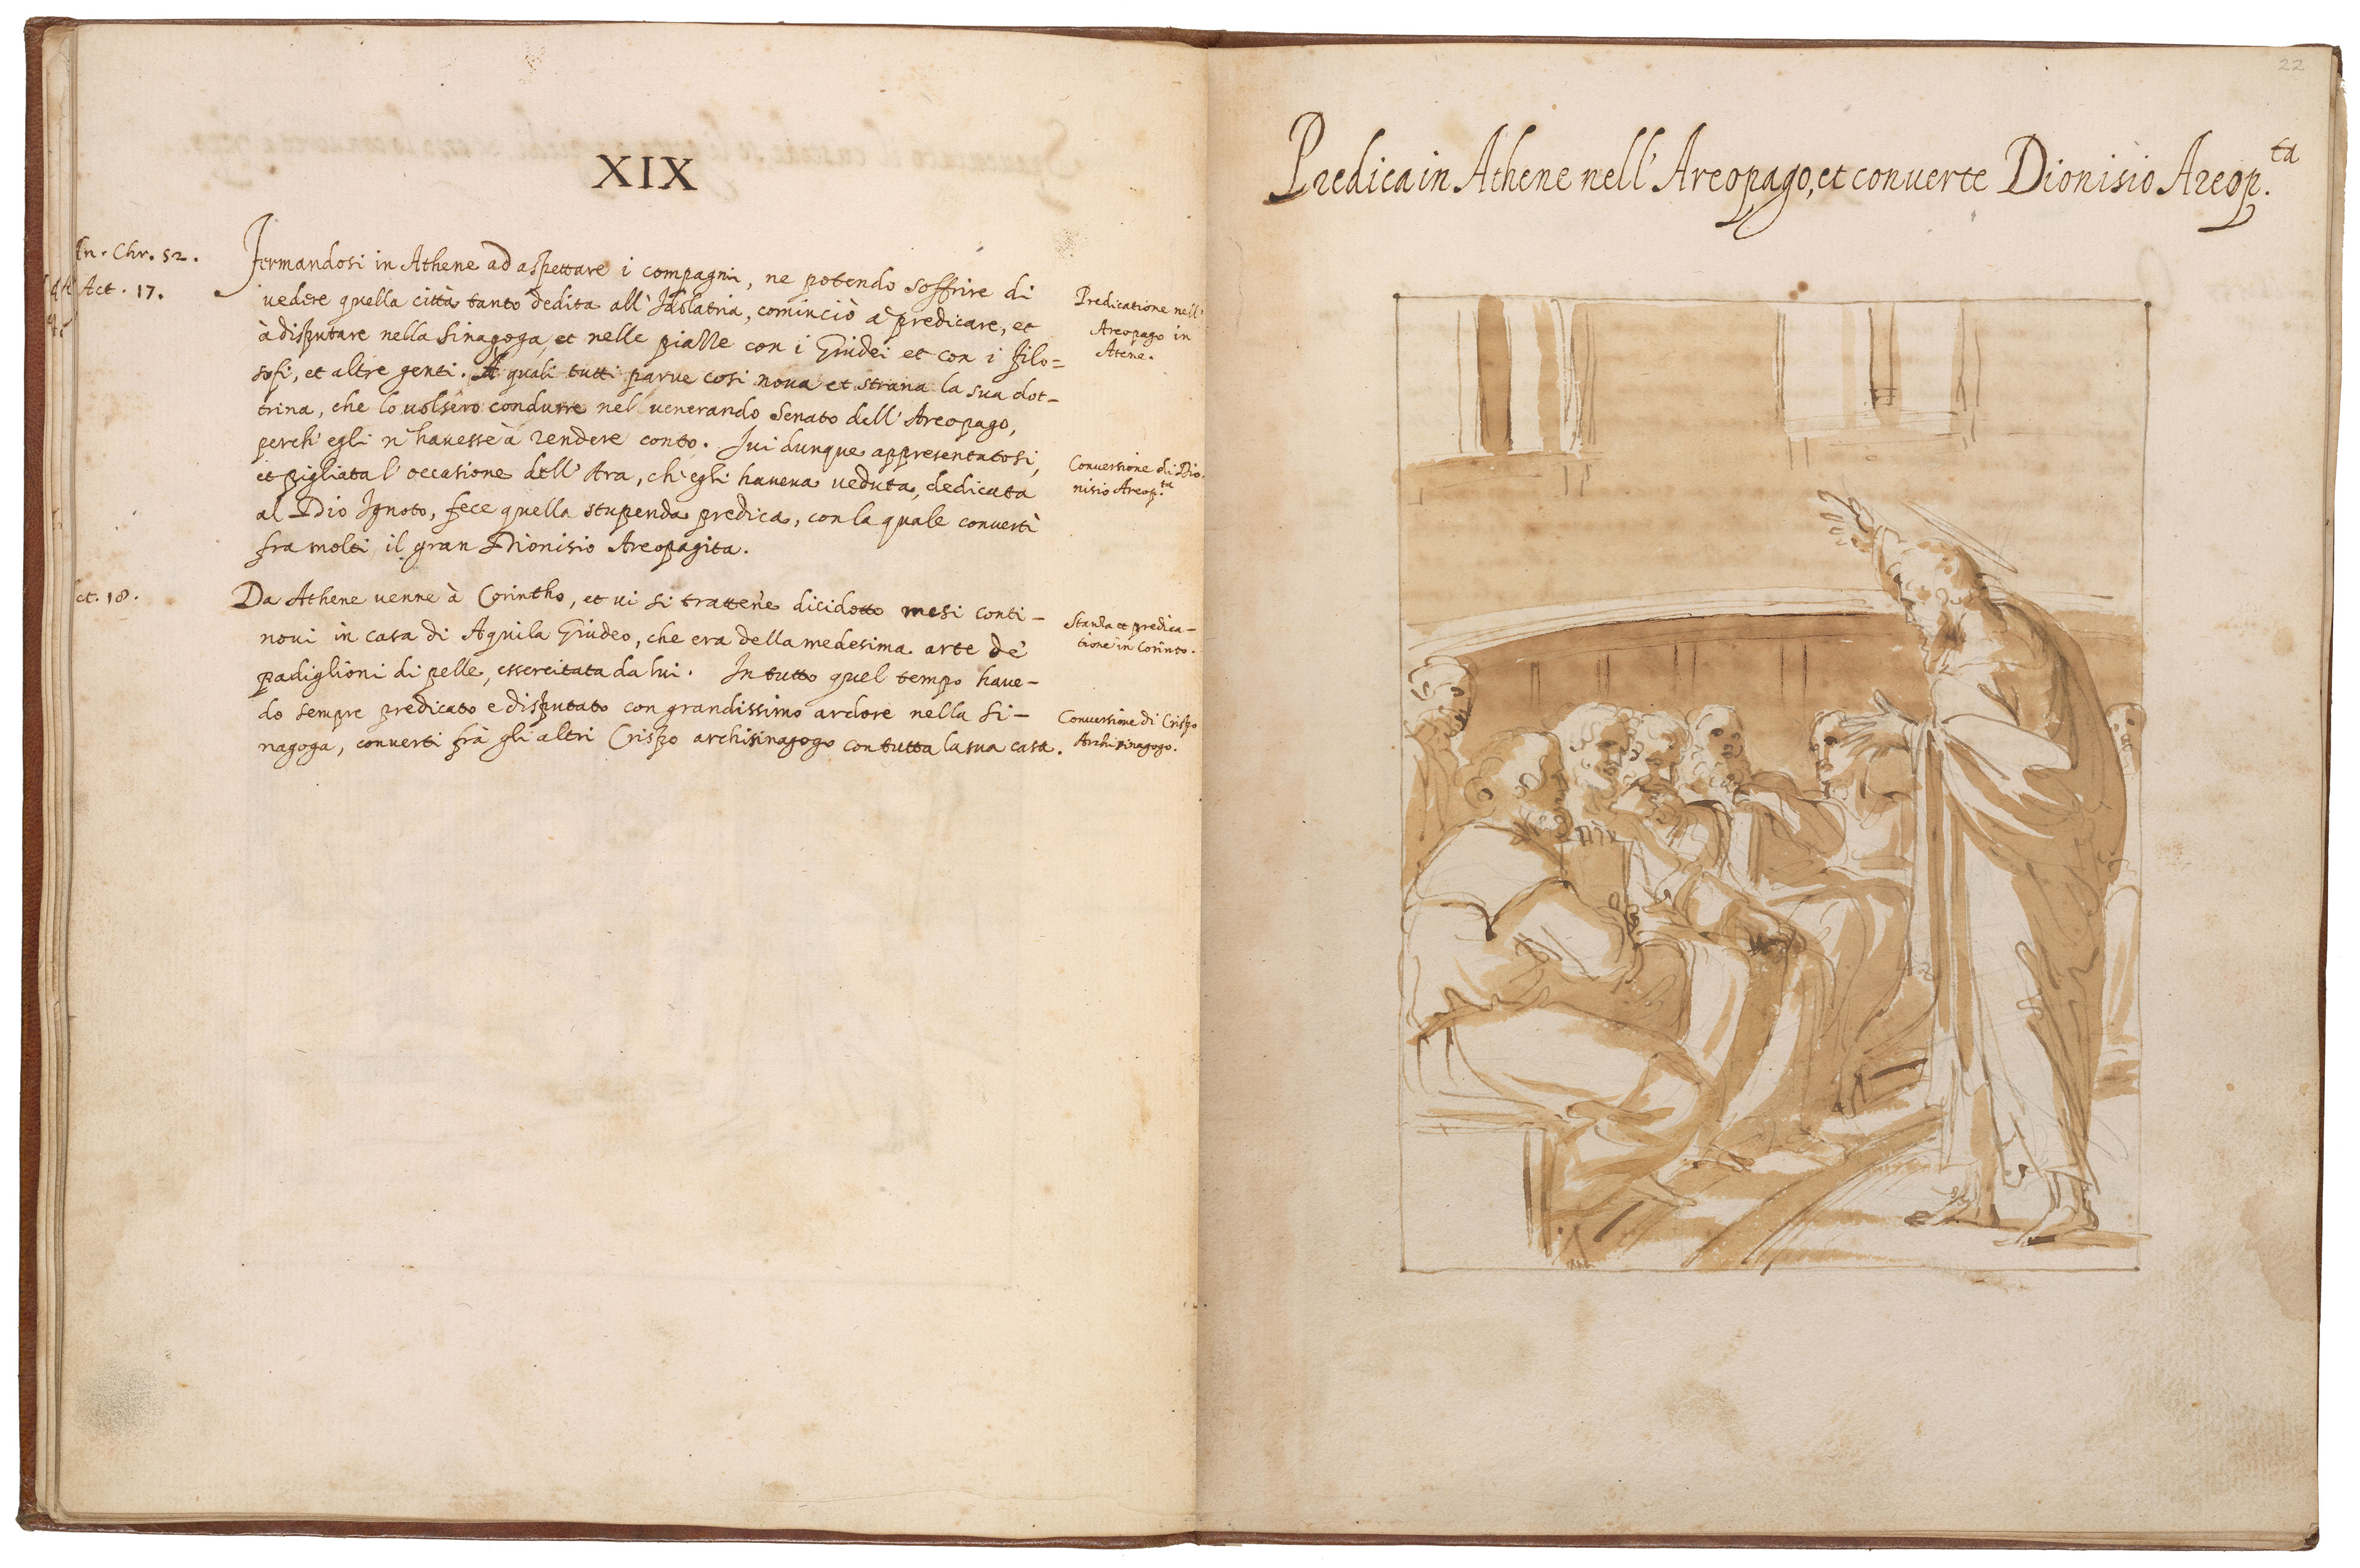 XIX
An. Chr. 52.
Act. 17.
Fermandosi in Athene ad aspettare i compagni, ne potendo soffrire di
vedere quella città tanto dedita all' Idolatria, cominciò a predicare, et
à disputare nella Sinagoga, et nelle piazze con i Giudei et con i filo-
sofi, et altre genti. A quali tutti parve cosi nova et strana la sua dot-
trina, che lo volsero condurre nel venerando Senato dell' Areopago,
perch' egli n' havesse à rendere conto. Ivi dunque appresentatosi,
et pigliata l' occasione dell' Ara, ch' egli haveva veduta, dedicata
al Dio Ignoto, fece quella stupenda predica, con la quale convertì
fra molti il gran Dionisio Areopagita.
Predicatione nell'
Areopago in
Atene.
Conversione di Dio-
nisio Areop.ta
ct. 18.
Da Athene venne à Corintho, et vi si trattene dicidotto mesi conti-
novi in casa di Aquila Giudeo, che era della medesima arte de'
padiglioni di pelle, essercitata da lui. In tutto quel tempo haven-
do sempre predicato e disputato con grandissimo ardore nella Si-
nagoga, convertì frà gli altri Crispo archisinagogo con tutta la sua casa.
Stanza et predica-
tione in Corinto.
Conversione di Crispo
Archisinagogo.
22
Predica in Athene nell' Areopago, et converte Dionisio Areop.ta